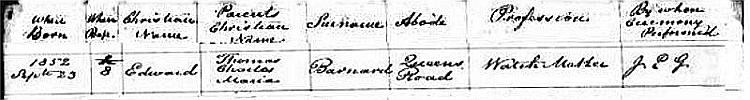 When Born
When Bap.
Christian Name
Parents Christian Name
Surname
Abode
Profession
By whom Ceremony Performed
1852 Septr 23
8
Edward
Thomas Charles Maria
Barnard
Queens Road
Watch Maker
J. E. G.